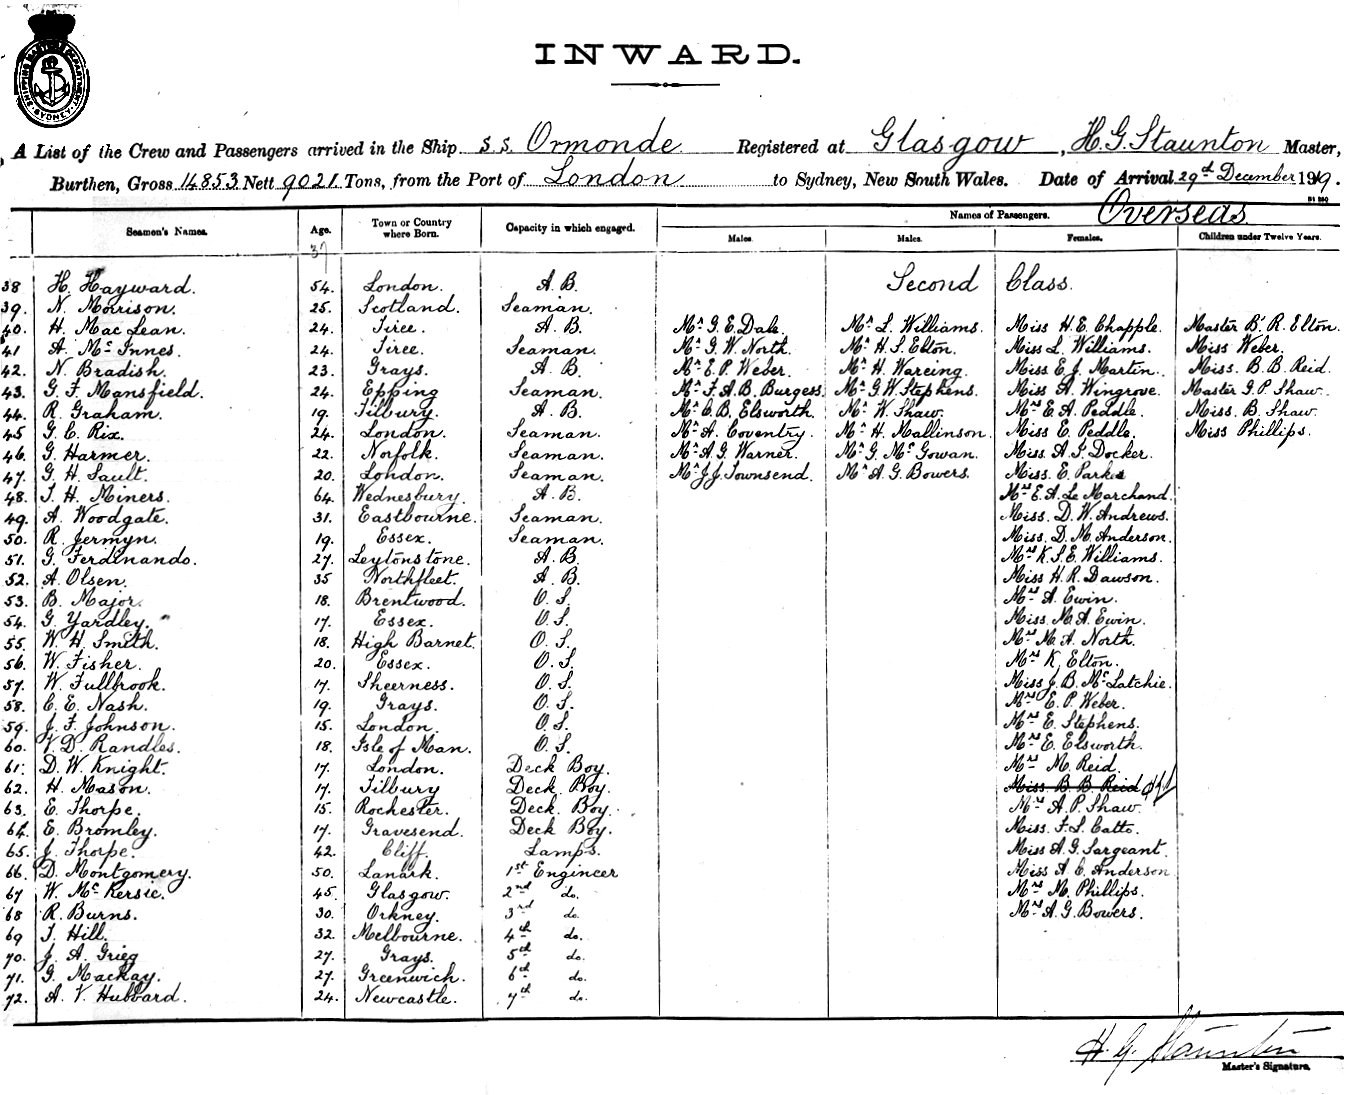 SHIPPING MASTER'S DEPARTMENT · SYDNEY ·
INWARD.
A List of the Crew and Passengers arrived in the Ship S.S. Ormonde Registered at Glasgow, H.G. Staunton Master,
Burthen, Gross 14853 Nett 9021 Tons, from the Port of London to Sydney, New South Wales. Date of Arrival 29th December 1919.
Overseas
Seamen's Names. Age. Town or Country where Born. Capacity in which engaged. Names of Passengers.
Males. Males. Females. Children under Twelve Years.
37
38 H. Hayward. 54. London. A.B. Second Class.
39. N. Morrison. 25. Scotland. Seaman.
40. H. Mac Lean. 24. Tiree. A.B. Mr G.E. Dale. Mr L. Williams. Miss H.E. Chapple. Master B.R. Elton.
41 A. McInnes. 24. Tiree. Seaman. Mr G.W. North. Mr H.S. Elton. Miss L. Williams. Miss Weber.
42. N. Bradish. 23. Grays. A.B. Mr E.P. Weber. Mr H. Wareing. Miss E.J. Martin. Miss. B.B. Reid.
43. G.F. Mansfield. 24. Epping Seaman. Mr F.A.B. Burgess. Mr G.W. Stephens. Miss A. Wingrove. Master G.P. Shaw.
44. R. Graham. 19. Tilbury. A.B. Mr C.B. Elsworth Mr W. Shaw. Mrs E.A. Peddle. Miss. B. Shaw.
45 G.C. Rix. 24. London. Seaman. Mr A. Coventry. Mr H. Mallinson. Miss E. Peddle. Miss Phillips.
46. G. Harmer. 22. Norfolk. Seaman. Mr A.G. Warner. Mr G. McGowan. Miss. A.J. Docker.
47. G.H. Sault. 20. London. Seaman. Mr J.J. Townsend. Mr A.G. Bowers. Miss. E. Parkes
48. T.H. Miners. 64. Wednesbury. A.B. Mrs E.A. Le Marchand.
49. A. Woodgate. 31. Eastbourne. Seaman. Miss. D.W. Andrews.
50. R. Jermyn. 19. Essex. Seaman. Miss. D.M. Anderson.
51. G. Ferdinando. 27. Leytonstone. A.B. Mrs K.S.E. Williams.
52. A. Olsen. 35 Northfleet. A.B. Miss H.R. Dawson.
53. B. Major. 18. Brentwood. O.S. Mrs A. Ewin.
54. G. Yardley. 17. Essex. O.S. Miss. M.A. Ewin.
55. W.H. Smith. 18. High Barnet. O.S. Mrs M.A. North.
56. W. Fisher. 20. Essex. O.S. Mrs K. Elton.
57. W. Fullbrook. 17. Sheerness. O.S. Miss J.B. McLatchie.
58. C.E. Nash. 19. Grays. O.S. Mrs E.P. Weber.
59. J.F. Johnson. 15. London. O.S. Mrs E. Stephens.
60. V.D. Randles. 18. Isle of Man. O.S. Mrs E. Elsworth.
61. D.W. Knight. 17. London. Deck Boy. Mrs M. Reid.
62. H. Mason. 17. Tilbury Deck Boy. Miss B B Reid
63. E. Thorpe. 15. Rochester. Deck Boy. Mrs A.P. Shaw.
64. E. Bromley. 17. Gravesend. Deck Boy. Miss. F.S. Catto.
65. J. Thorpe. 42. Cliff. Lamps. Miss A.G. Sargeant.
66. D. Montgomery. 50. Lanark. 1st Engineer Miss A.C. Anderson
67 W. McKersie. 45. Glasgow. 2nd do. Mrs M. Phillips.
68 R. Burns. 30. Orkney. 3rd do. Mrs A.G. Bowers.
69 T. Hill. 32. Melbourne. 4th do.
70. J.A. Grieg 27. Grays. 5th do.
71. G. Mackay. 27. Greenwich. 6th do.
72. A.V. Hubbard. 24. Newcastle. 7th do.
H. G. Staunton
Master's Signature.